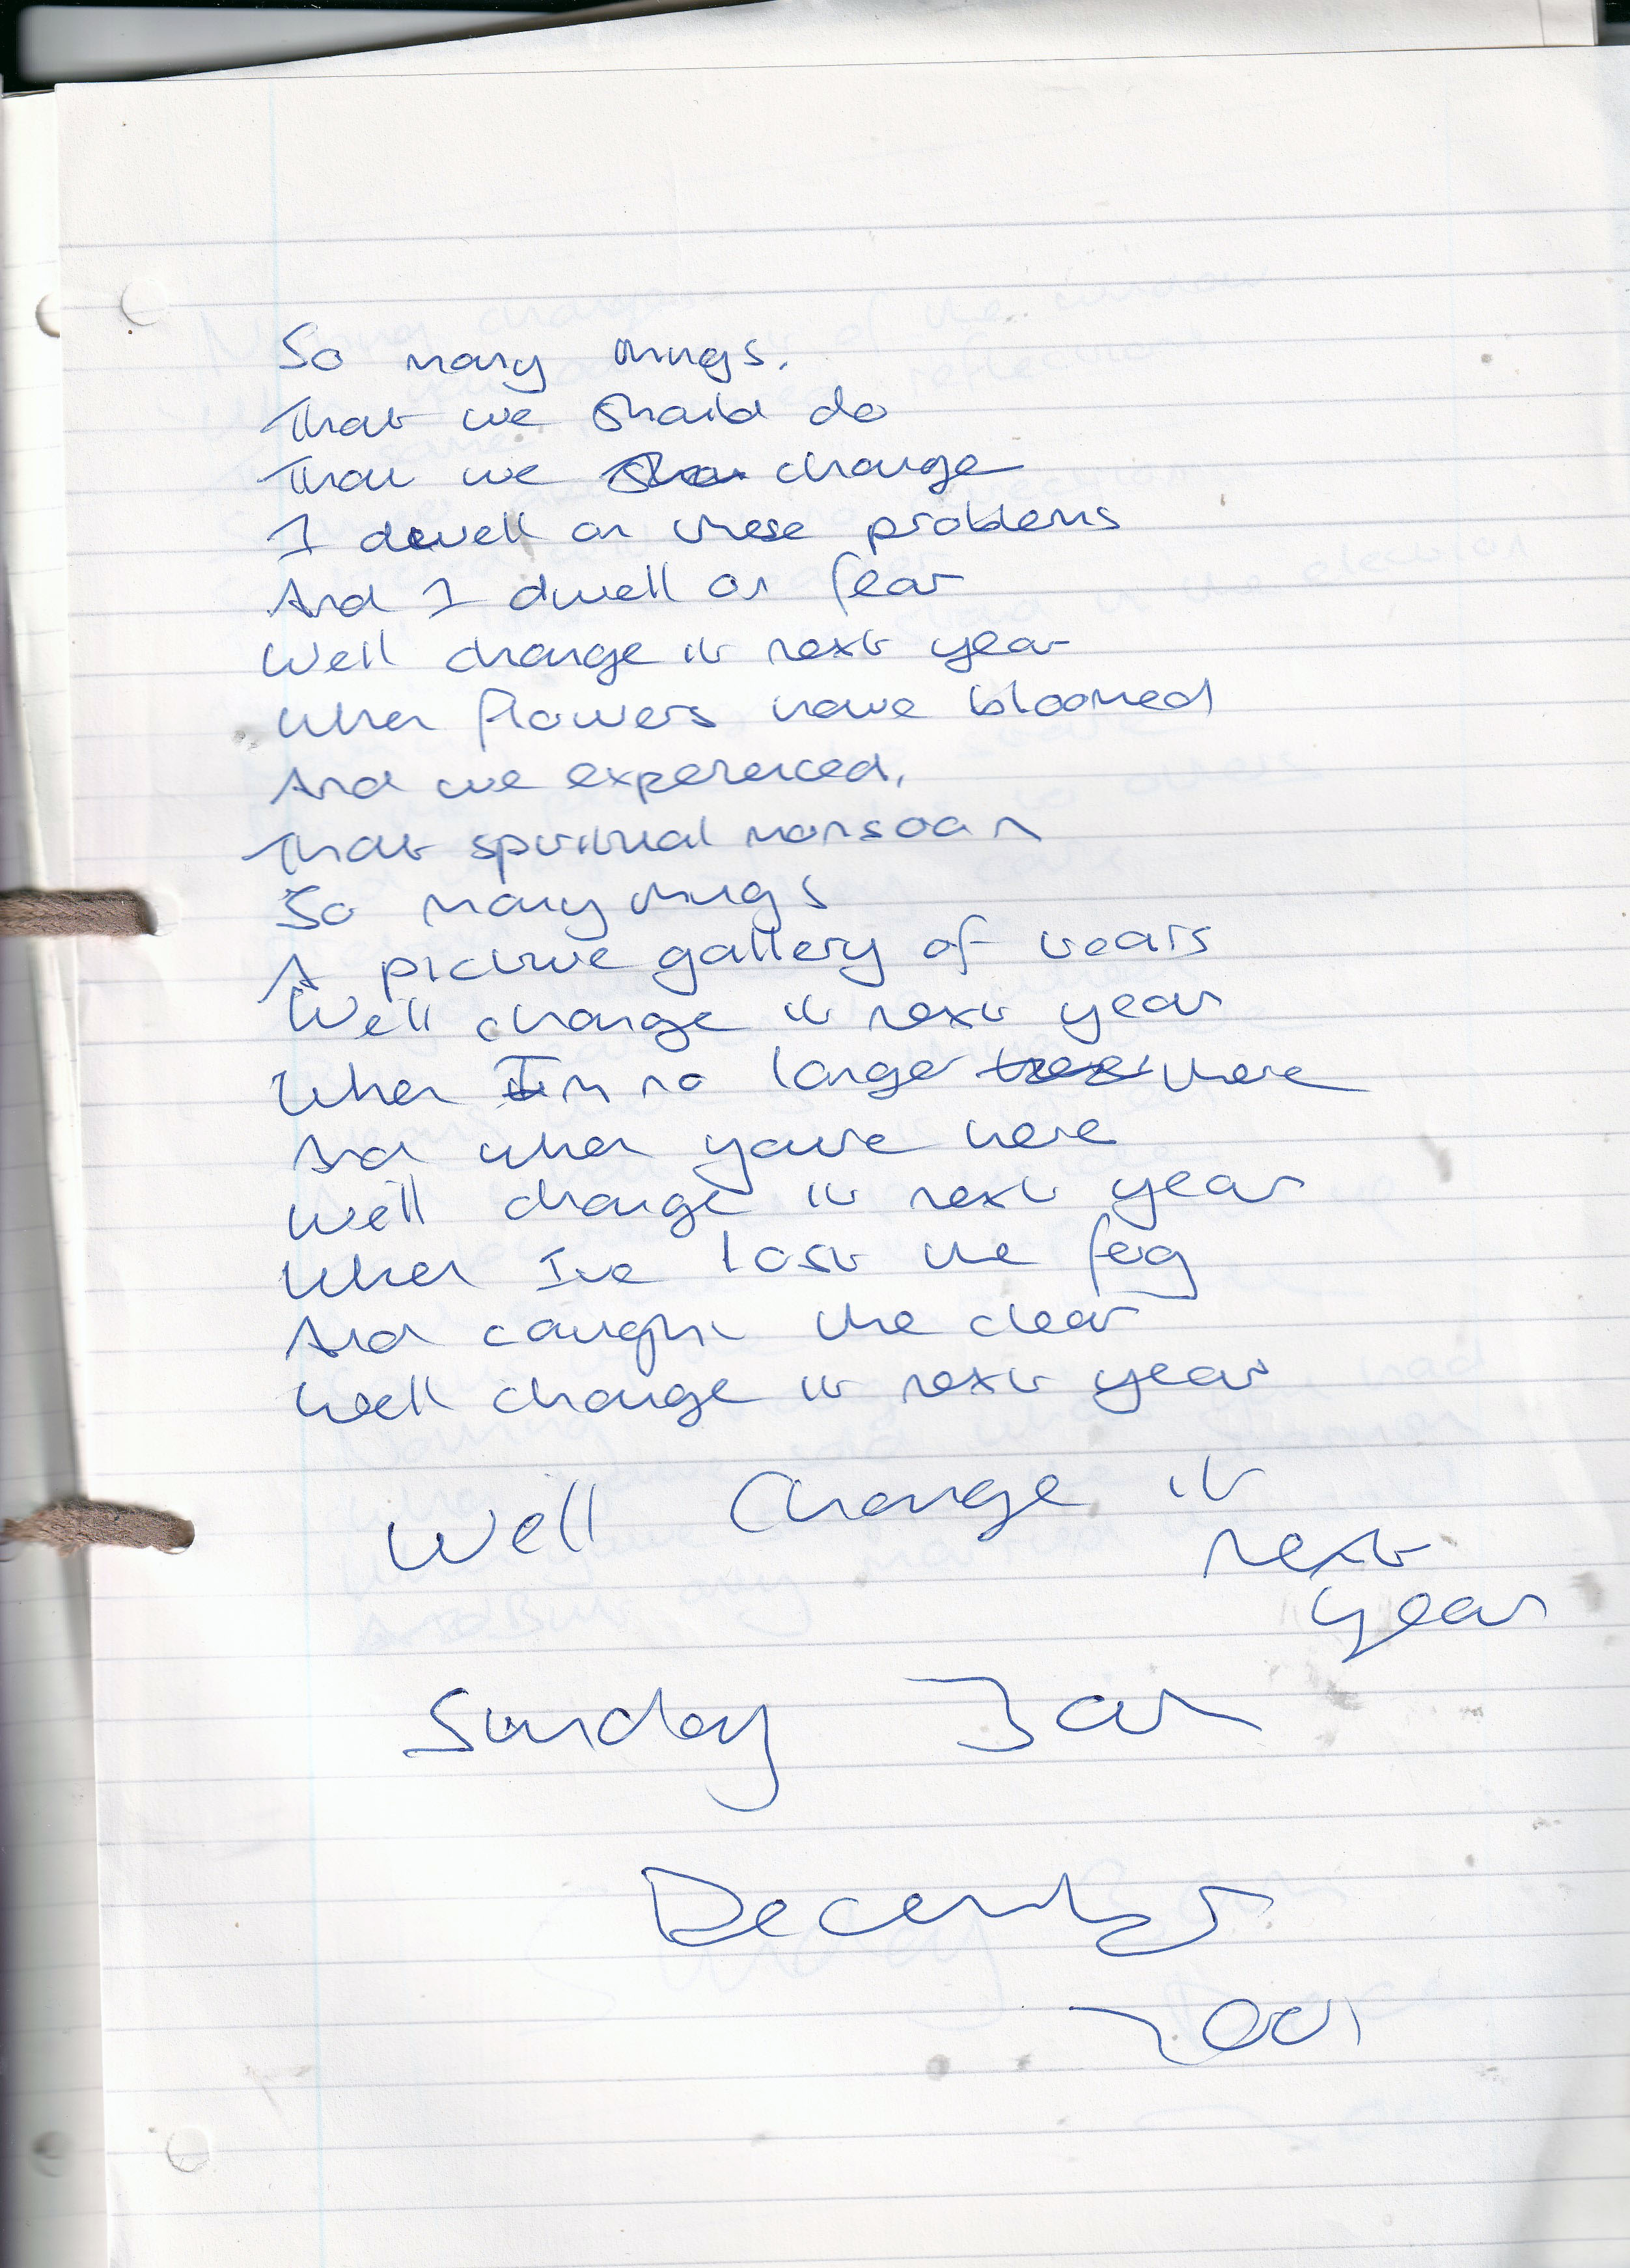 So many things.
That we should do
That we change
I dwell on these problems
And I dwell on fear
Well change it next year
When flowers have bloomed
And we experenced,
That spiritual monsoon
So many things
A picture gallery of tears
Well change it next year
When I'm no longer there
And when youre here
We'll change it next year
When Ive lost the fog
And caught the clear
Well change it next year
Well Change it
next
year
Sunday
December
2001